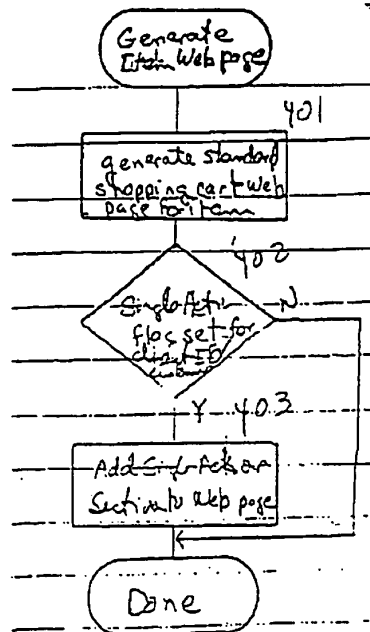 Generate
Item Web page
401
generate standard
shopping cart Web
page for item
402
Single-Action N
flag set for
client ID
Y 403
Add Single-Action
Section to Web page
Done